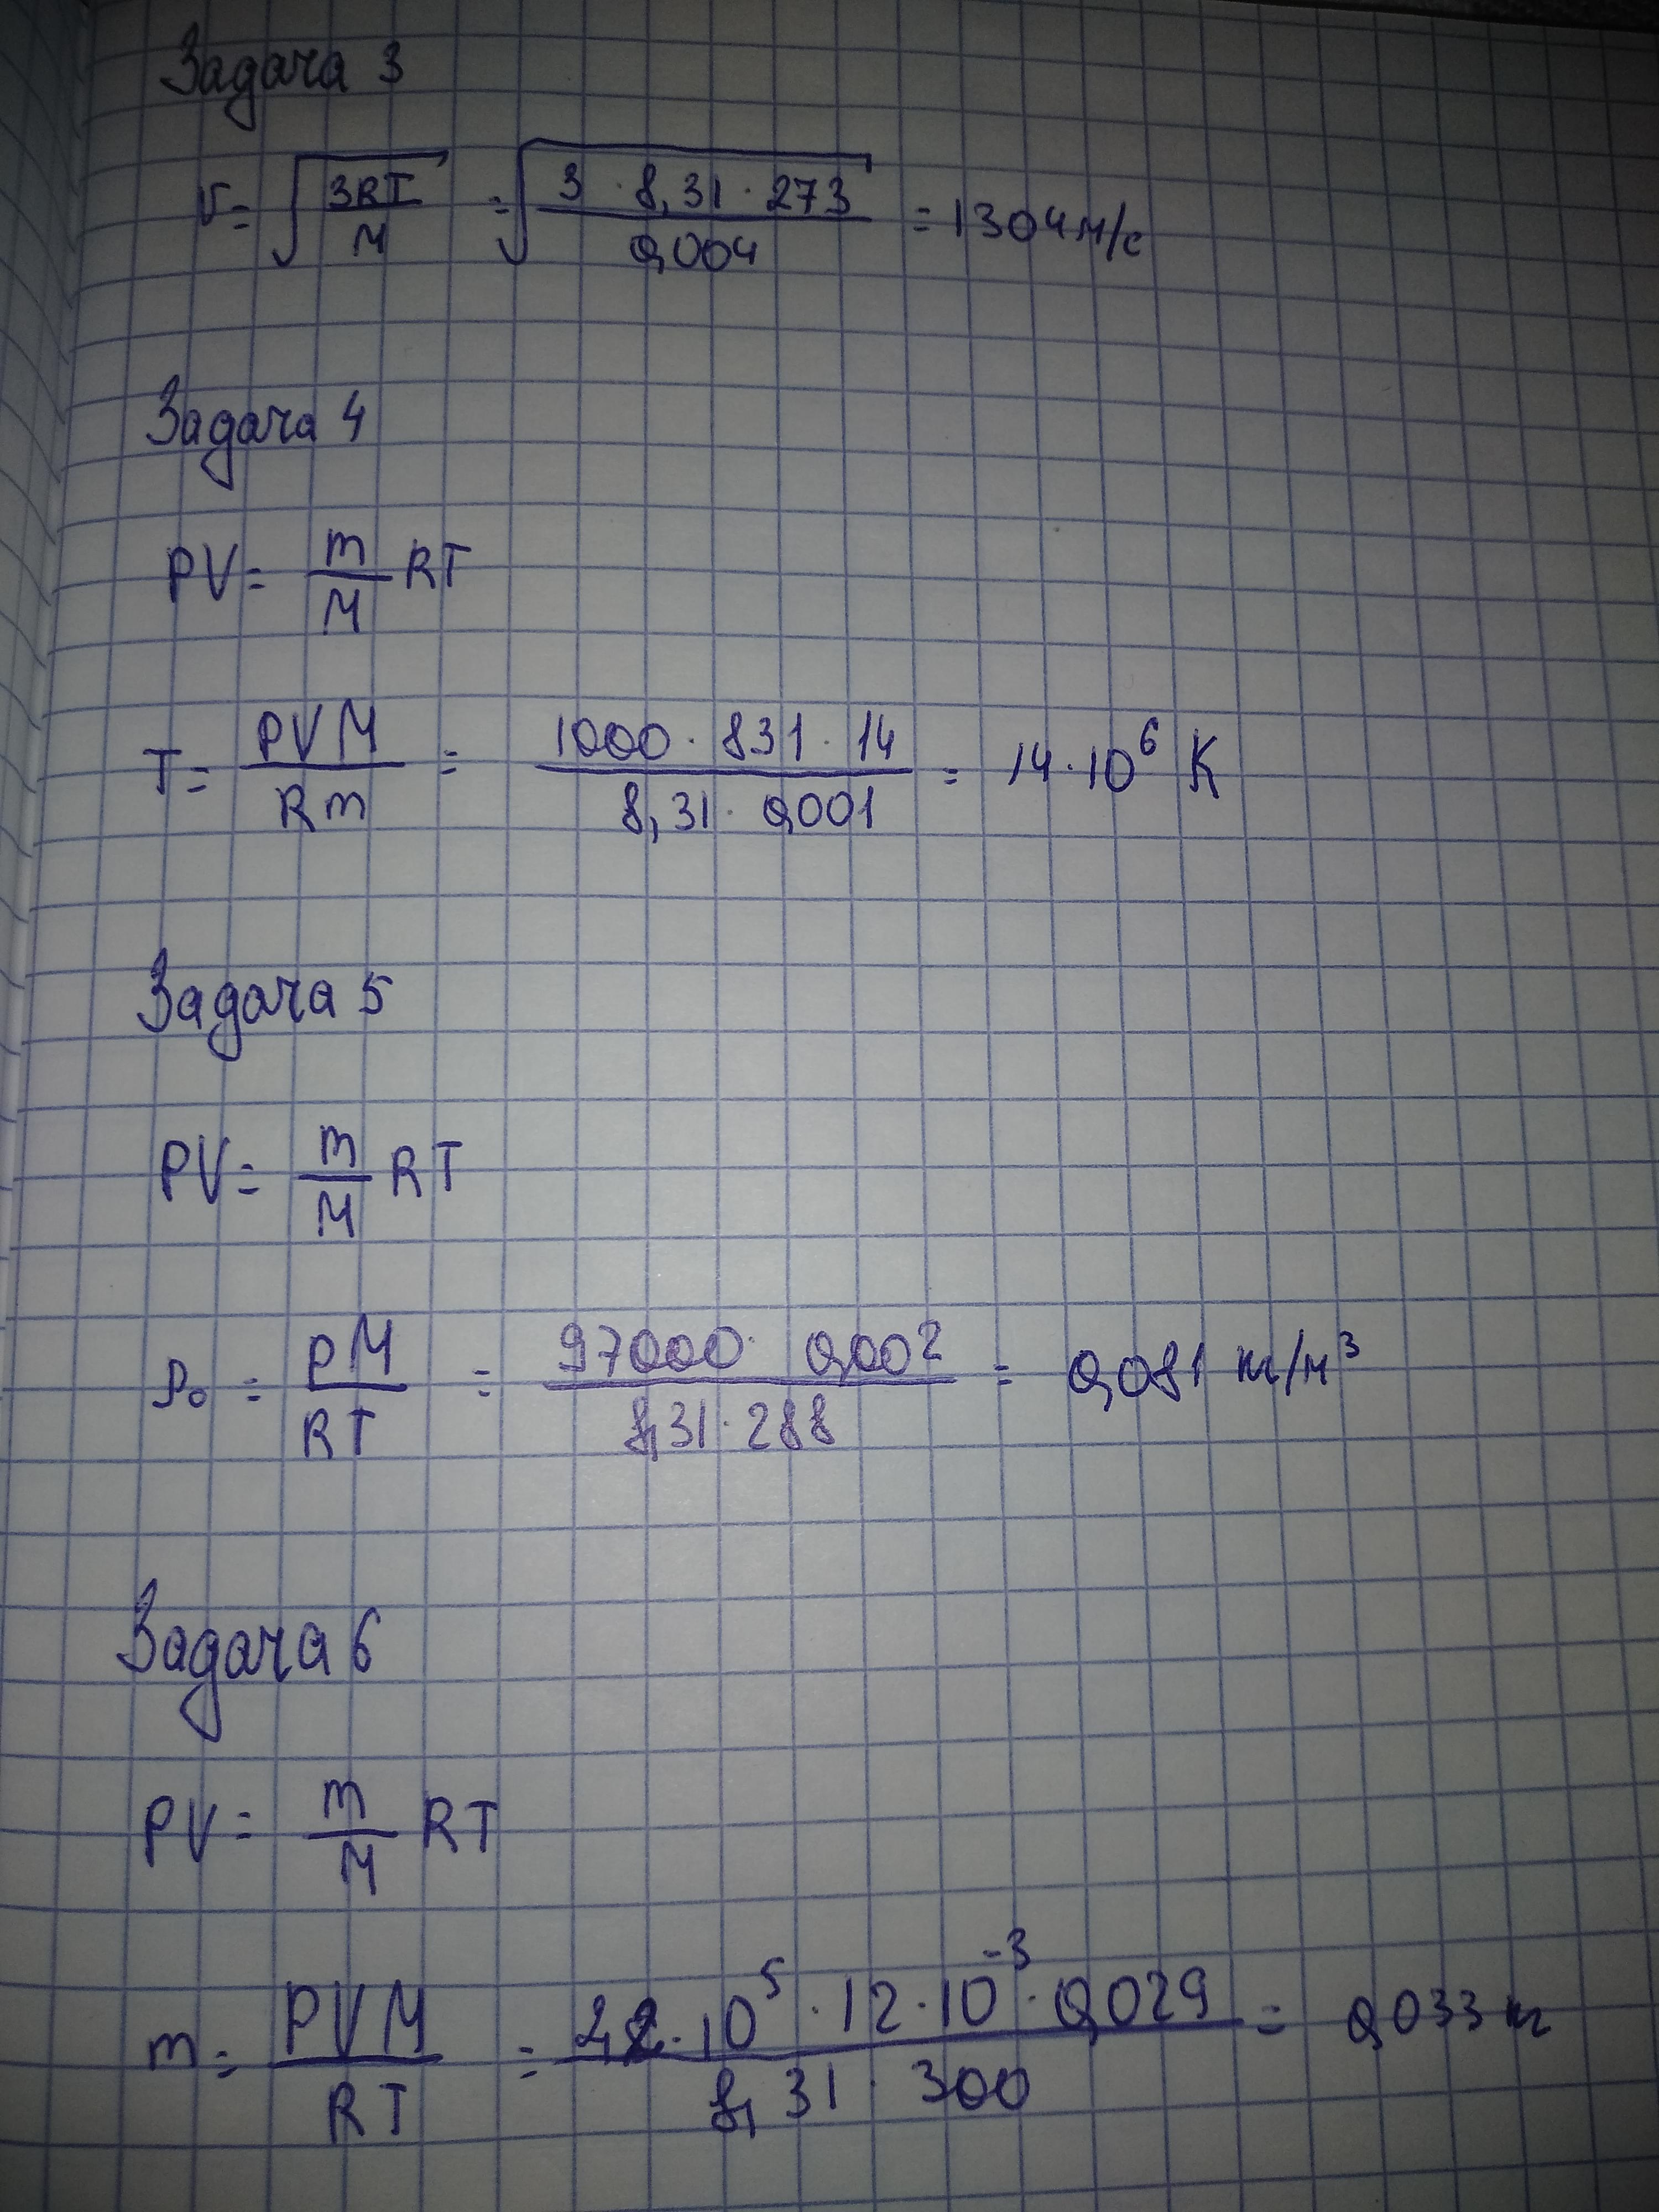 Задача 3
v = √(3RT/M) = √(3 · 8,31 · 273 / 0,004) = 1304 м/с
Задача 4
PV = m/M RT
T = PVM/Rm = 1000 · 831 · 14 / 8,31 · 0,001 = 14 · 10⁶ K
Задача 5
PV = m/M RT
ρ₀ = PM/RT = 97000 · 0,002 / 8,31 · 288 = 0,081 кг/м³
Задача 6
PV = m/M RT
m = PVM/RT = 2,2 · 10⁵ · 12 · 10⁻³ · 0,029 / 8,31 · 300 = 0,033 кг